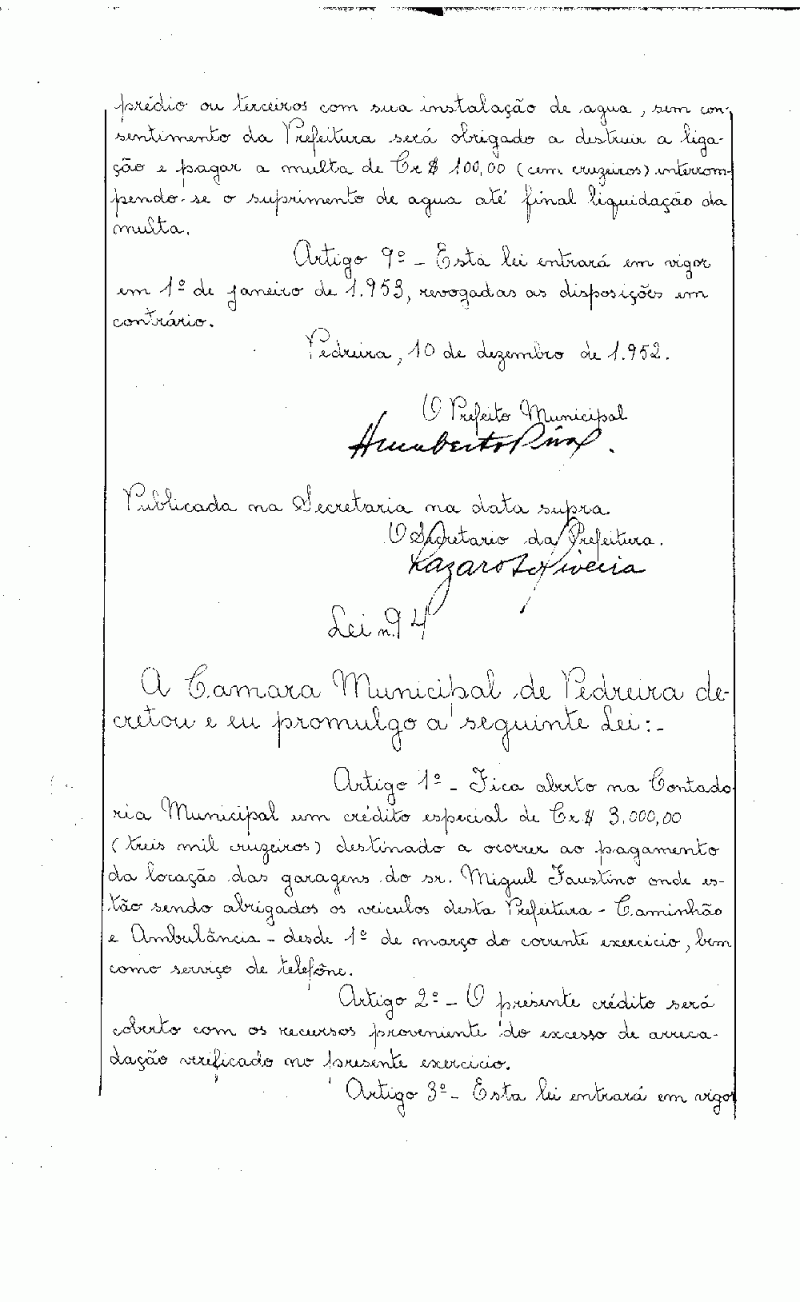 prédio ou terceiros com sua instalação de agua, sem con-
sentimento da Prefeitura será obrigado a destruir a liga-
ção e pagar a multa de Cr$ 100,00 (cem cruzeiros) interrom-
pendo-se o suprimento de agua até final liquidação da
multa.
Artigo 9º - Esta lei entrará em vigor
em 1º de janeiro de 1.953, revogadas as disposições em
contrário.
Pedreira, 10 de dezembro de 1.952.
O Prefeito Municipal
Humberto Piva.
Publicada na Secretaria na data supra.
O Secretario da Prefeitura.
Lazaro
Lei n. 94
A Camara Municipal de Pedreira de-
cretou e eu promulgo a seguinte Lei:-
Artigo 1º - Fica aberto na Contado
ria Municipal um crédito especial de Cr$ 3.000,00
(treis mil cruzeiros) destinado a ocorrer ao pagamento
da locação das garagens do sr. Miguel Faustino onde es-
tão sendo abrigados os veiculos desta Prefeitura - Caminhão
e Ambulância - desde 1º de março do corrente exercicio, bem
como serviço de telefône.
Artigo 2º - O presente crédito será
coberto com os recursos proveniente do excesso de arreca-
dação verificado no presente exercicio.
Artigo 3º - Esta lei entrará em vigor